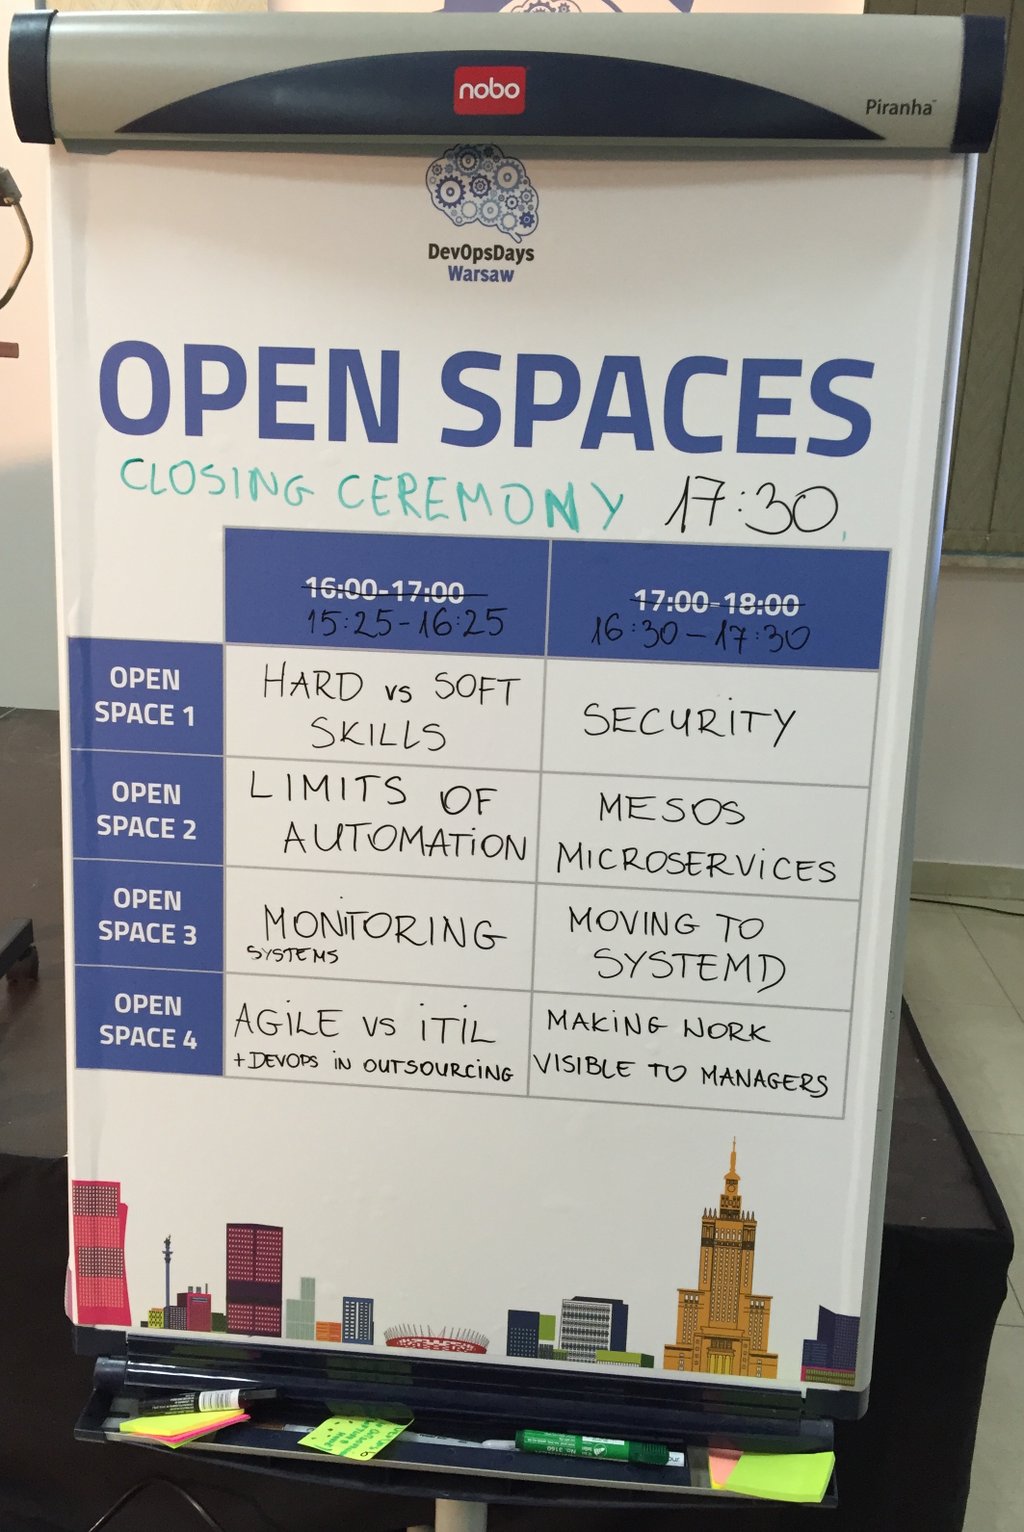 nobo
Piranha
DevOpsDays
Warsaw
OPEN SPACES
CLOSING CEREMONY 17:30
16:00-17:00
15:25-16:25
17:00-18:00
16:30-17:30
OPEN
SPACE 1
HARD vs SOFT
SKILLS
SECURITY
OPEN
SPACE 2
LIMITS OF
AUTOMATION
MESOS
MICROSERVICES
OPEN
SPACE 3
MONITORING
SYSTEMS
MOVING TO
SYSTEMD
OPEN
SPACE 4
AGILE VS ITIL
+DEVOPS IN OUTSOURCING
MAKING WORK
VISIBLE TO MANAGERS